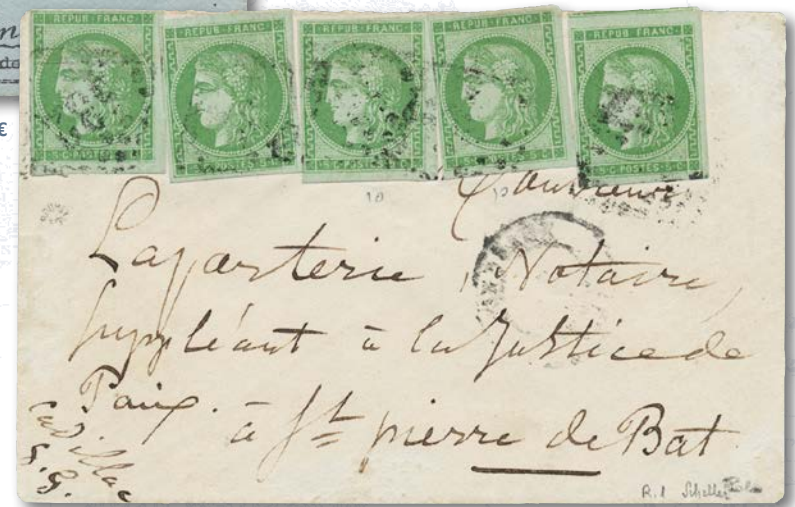 REPUB·FRANC· REPUB·FRANC· REPUB·FRANC· REPUB·FRANC· REPUB·FRANC·
5·C·POSTES·5·C 5·C·POSTES·5·C 5·C·POSTES·5·C 5·C·POSTES·5·C
€
10
Monsieur
Laparterie, Notaire,
Suppléant à la Justice de
Paix.
à St pierre de Bat
Cadillac
S. G.
R.1 Scheller